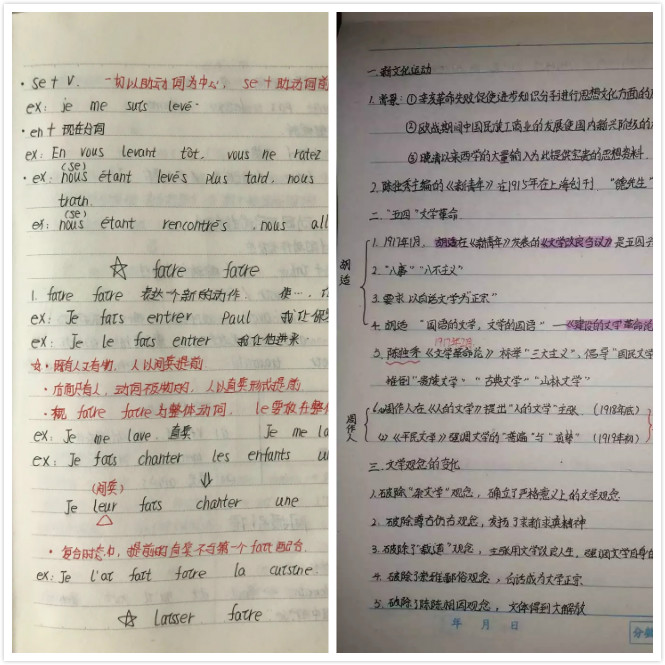 · se + v. 一切以助动词为中心, se + 助动词前
ex: je me suis levé.
· en + 现在分词
ex: En vous levant tôt, vous ne ratez
(se)
· ex: nous étant levés plus tard, nous
train.
(se)
ex: nous étant rencontrés, nous all
☆ faire faire
1. faire faire 表达一个新的动作. 使…, 让
ex: Je fais entrer Paul 我让保罗
ex: Je le fais entrer 我让他进来
☆ · 既有人又有物, 人以间宾提前
· 后面只有人, 动词不及物时, 人以直宾形式提前
· 视 faire faire 为整体动词, le要放在整体
ex: Je me lave. 直宾 Je me la
ex: Je fais chanter les enfants u
(间宾)
Je leur fais chanter une
· 复合时态中, 提前的直宾不与第一个faire配合.
ex: Je l'ai fait faire la cuisine.
☆ laisser faire
一. 新文化运动
1. 背景: ①辛亥革命失败促使进步知识分子进行思想文化方面的
②欧战期间中国民族工商业的发展使国内新兴阶级的
③晚清以来西学的大量输入为此提供宝贵的思想资料.
2. 陈独秀主编的《新青年》在1915年在上海创刊 "德先生"
二. "五四"文学革命
胡适
1. 1917年1月, 胡适在《新青年》发表的《文学改良刍议》是五四
2. "八事" "八不主义"
3. 要求以白话文学为"正宗"
4. 胡适 "国语的文学, 文学的国语" —《建设的文学革命论
1917年2月
5. 陈独秀《文学革命论》标举"三大主义", 倡导"国民文学
推倒"贵族文学" "古典文学" "山林文学"
周作人
6. (1) 周作人在《人的文学》提出"人的文学"主张. (1918年底)
(2)《平民文学》强调文学的"普遍"与"真挚" (1919年初)
三. 文学观念的变化
1. 破除"杂文学"观念, 确立了严格意义上的文学观念
2. 破除尊古仿古观念, 发扬了求新求真精神
3. 破除了"载道"观念, 主张用文学改良人生, 强调文学自身
4. 破除了鄙俗观念, 白话成为文学正宗
5. 破除了陈陈相因观念, 文体得到大解放
年 月 日